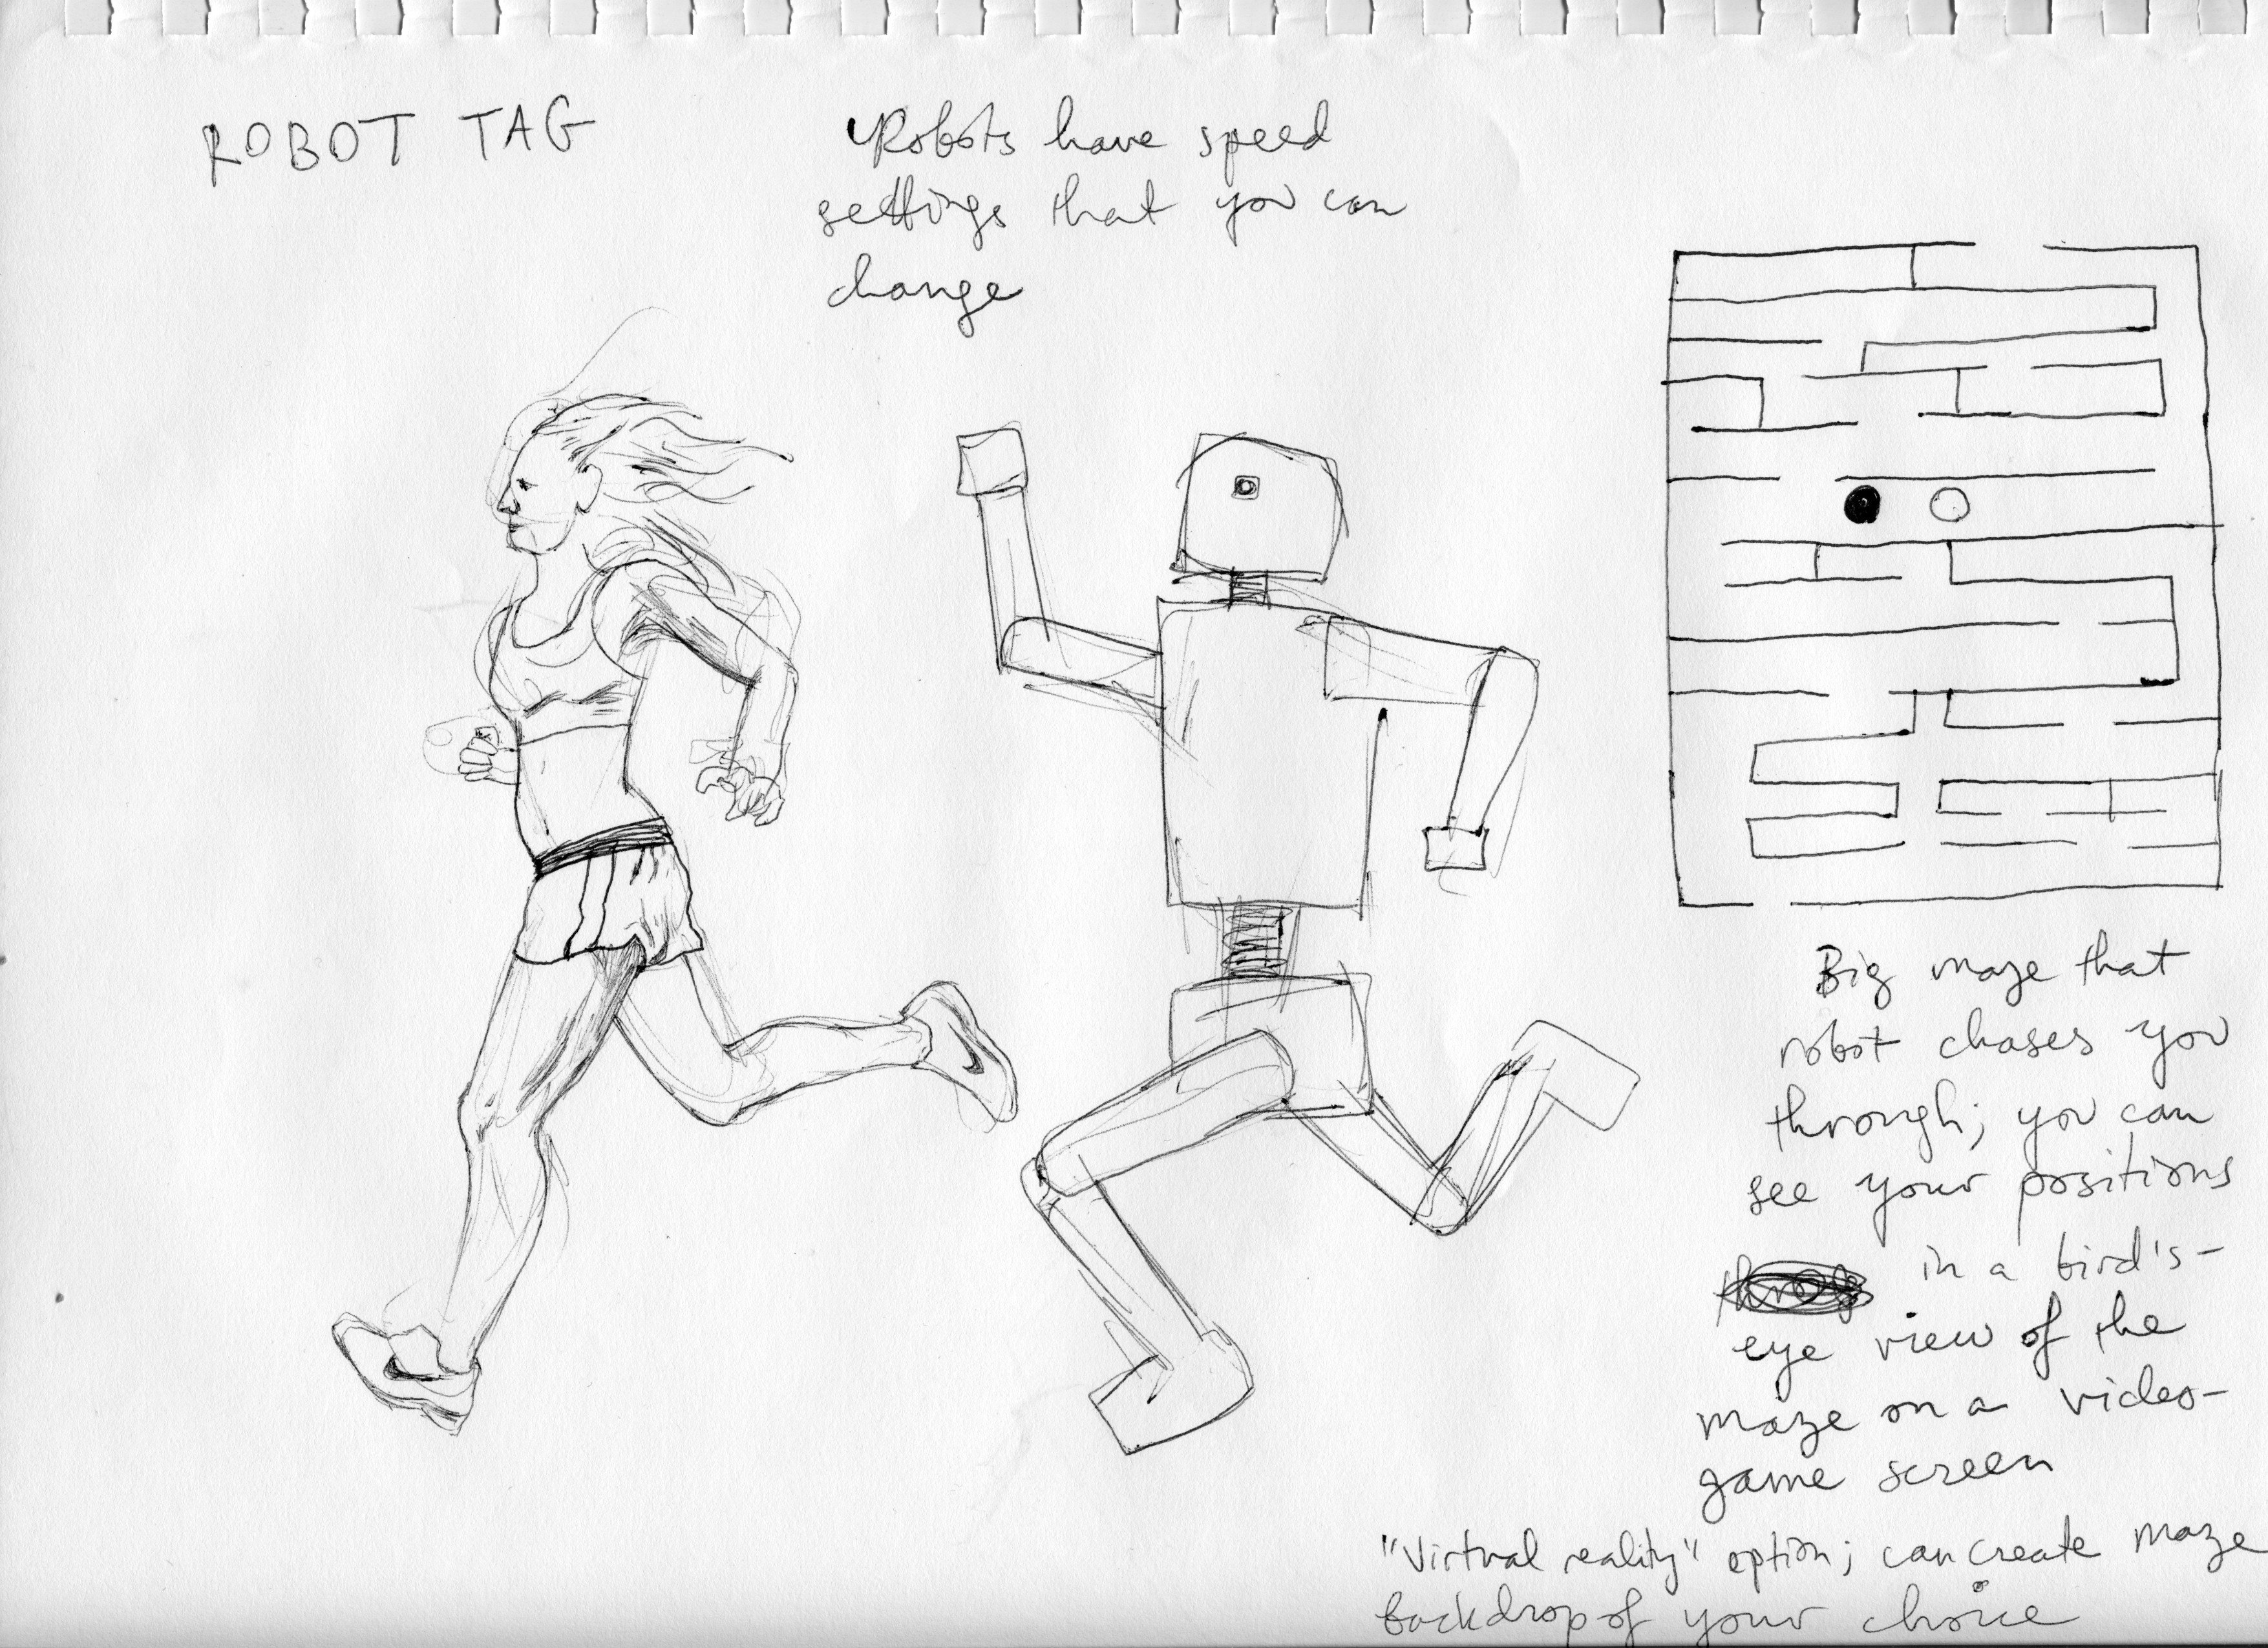 ROBOT TAG
Robots have speed
settings that you can
change
Big maze that
robot chases you
through; you can
see your positions
in a bird's-
eye view of the
maze on a video-
game screen
"Virtual reality" option; can create maze
backdrop of your choice